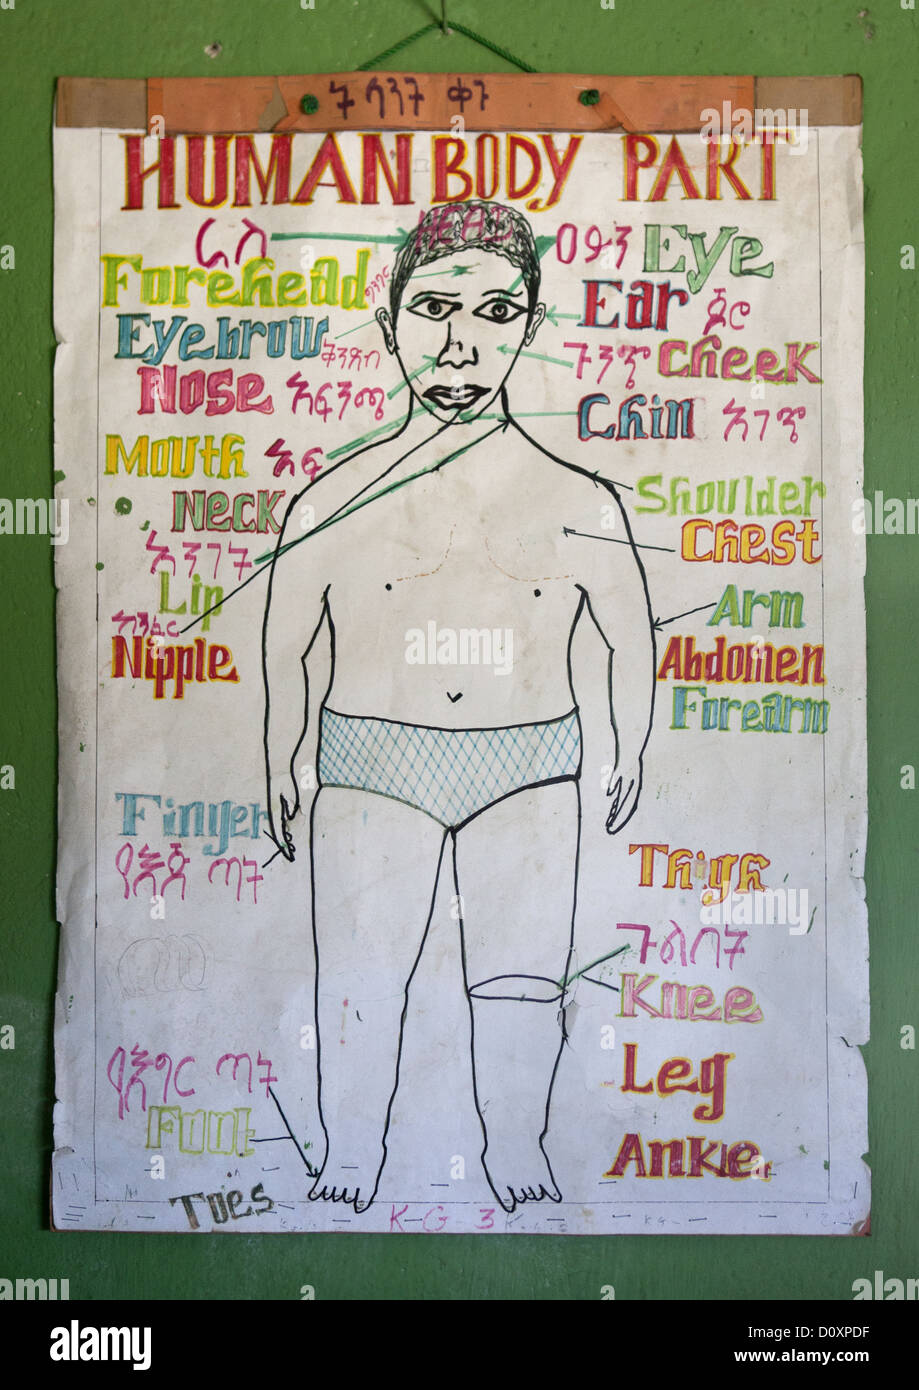 ት ሳንት ቀኑ
HUMAN BODY PART
HEAD
ራስ
ዐይን Eye
Forehead ግንባር
Ear ጆሮ
Eyebrow ቅንድብ
ጉንጭ Cheek
Nose አፍንጫ
Chin አገጭ
Mouth አፍ
Neck
Shoulder
Chest
አንገት
Lip
Arm
ከንፈር
Nipple
Abdomen
Forearm
Finger
የእጅ ጣት
Thigh
ጉልበት
Knee
የእግር ጣት
Leg
Foot
Ankle
Toes
K-G-3
alamy
Image ID: D0XPDF
www.alamy.com